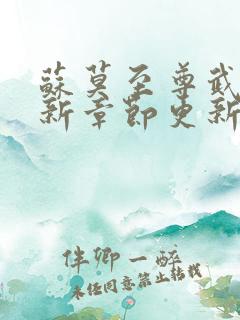 蘇莫至尊武
新章節更新
伴卿一醉
未任同意禁止转载